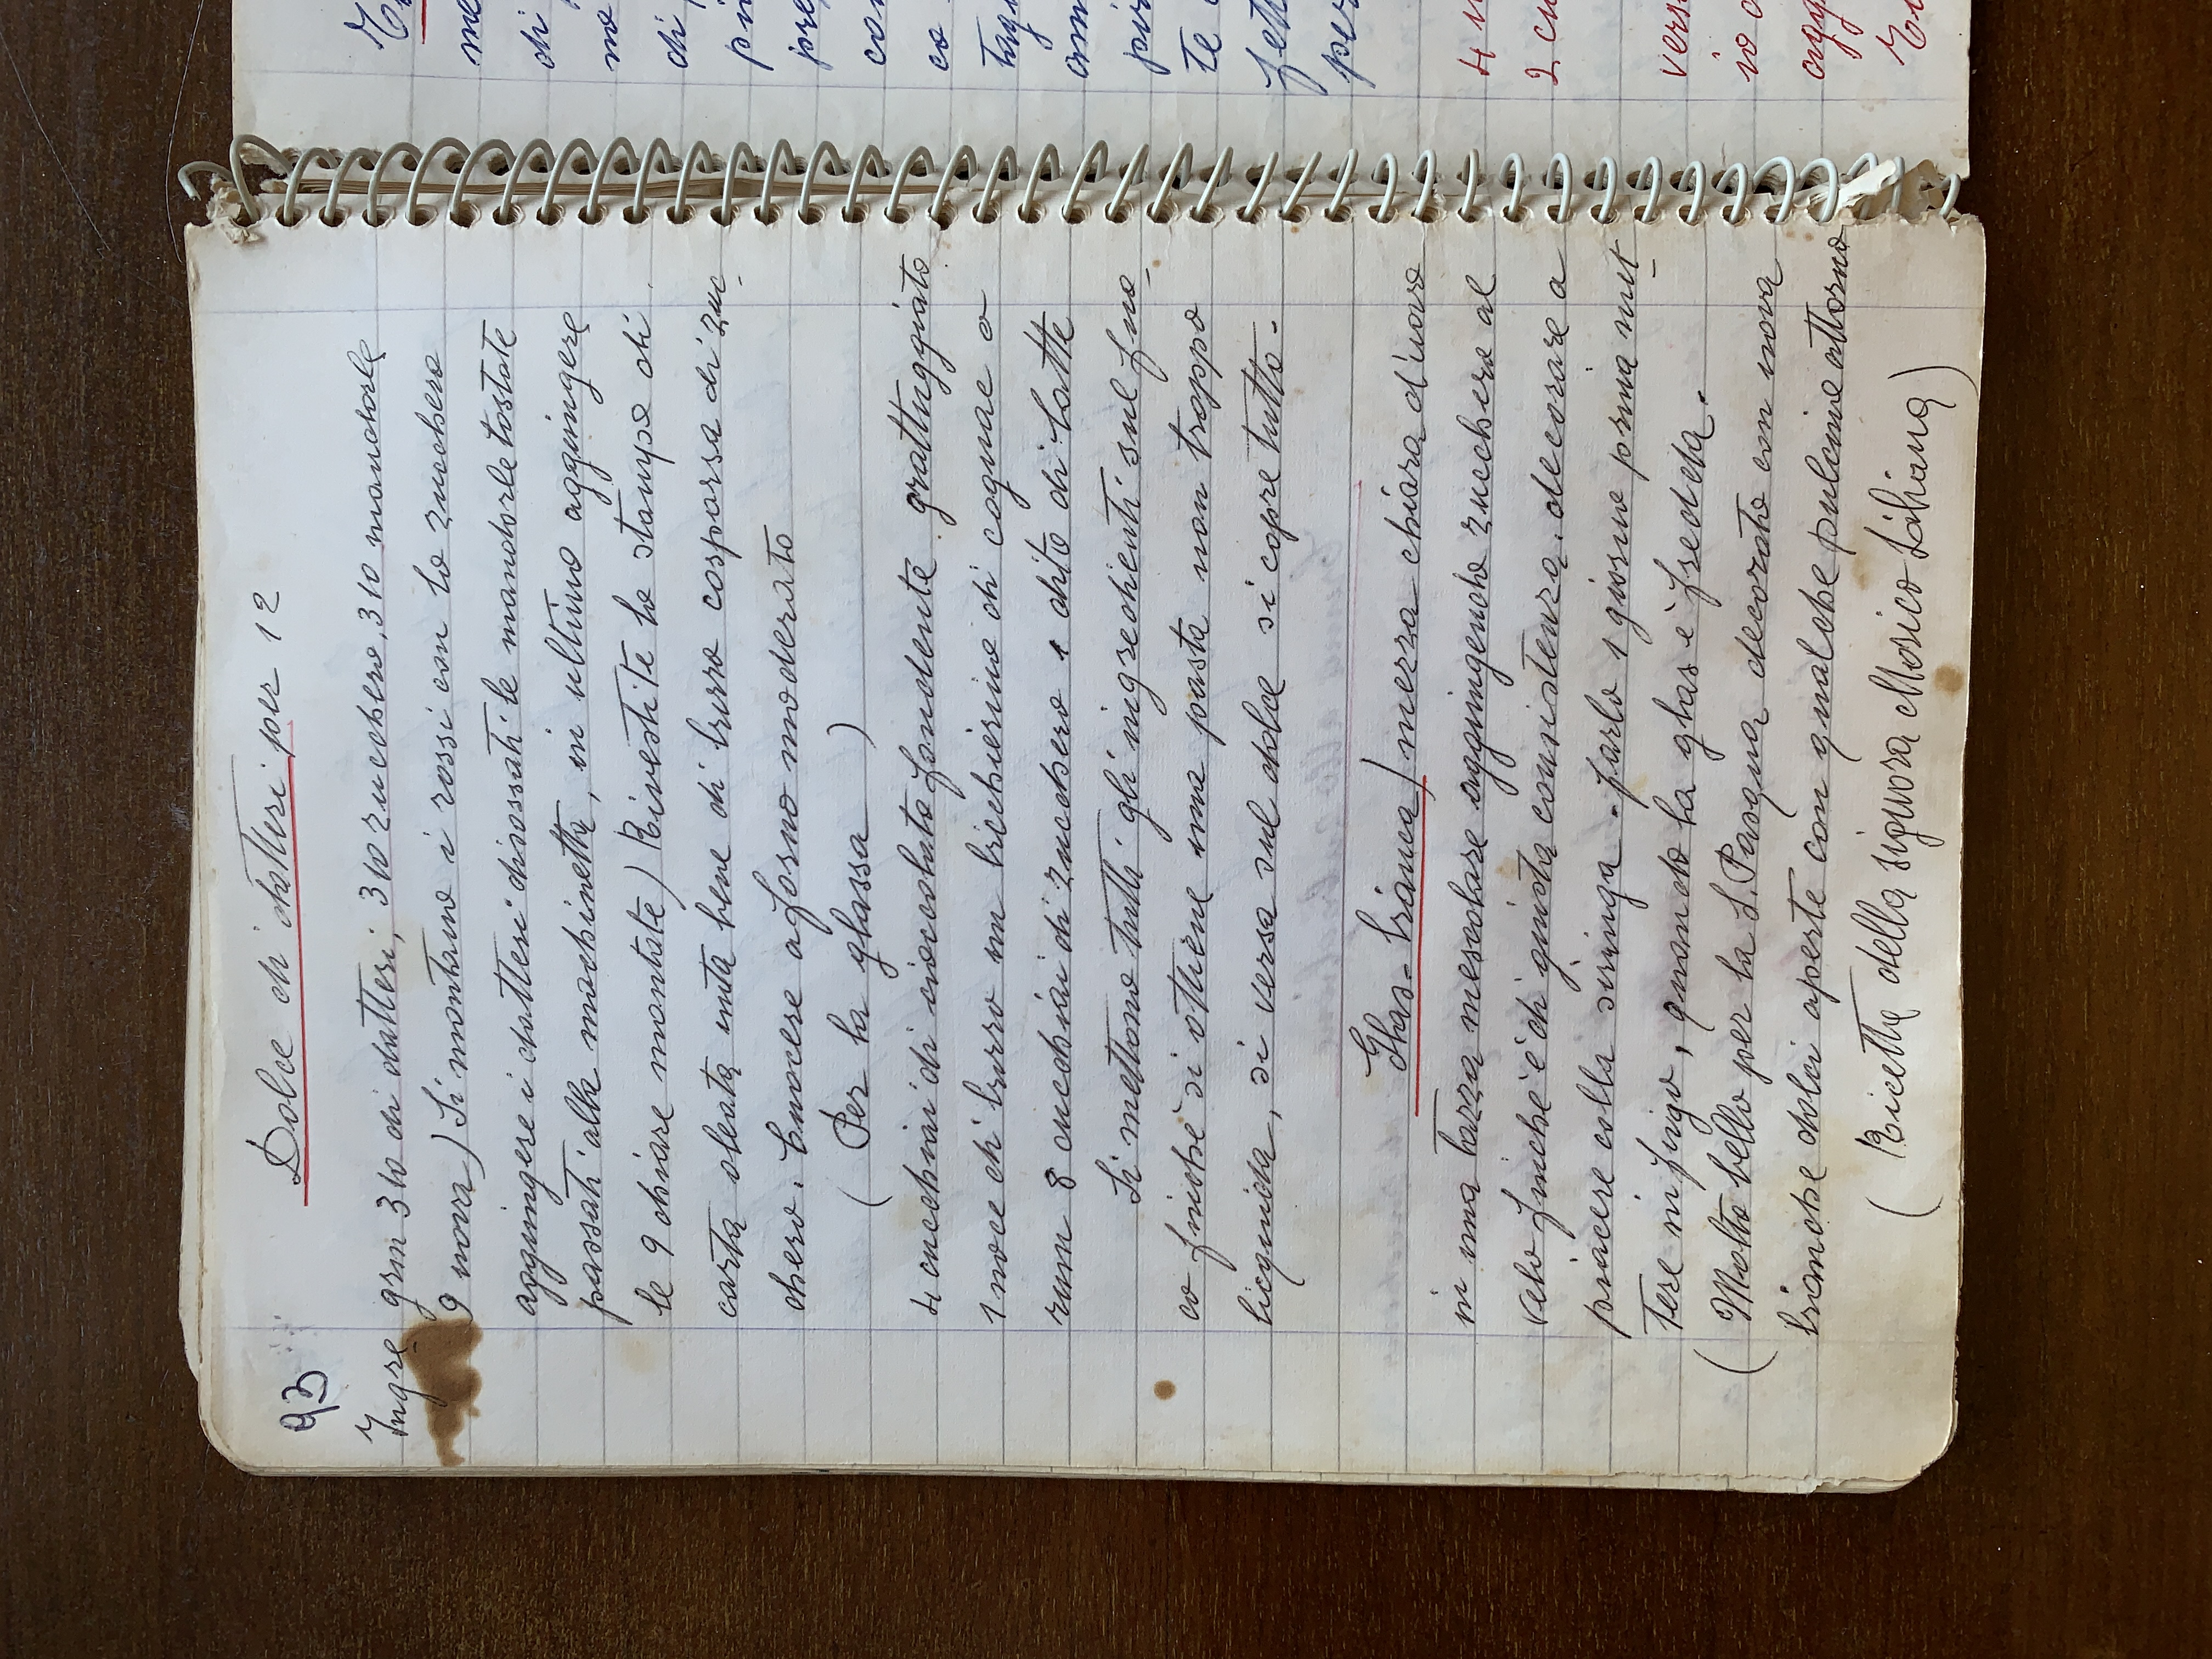 93
Dolce di datteri per 12
Ingre grm 310 di datteri, 310 zucchero, 310 mandorle
9 uova) Si montano i rossi con lo zucchero
aggiungere i datteri disossati le mandorle tostate
passati alla machinetta, in ultimo aggiungere
le 9 chiare montate) Rivestite lo stampo di
carta oleata unta bene di burro cosparsa di zuc
chero. Cuocere a forno moderato
( Per la glassa )
4 cucchiai di cioccolato fondente grattuggiato
1 noce di burro un bicchierino di cognac o
rum 8 cucchiai di zucchero 1 dito di latte
Si mettono tutti gli ingredienti sul fuo
co finchè si ottiene una pasta non troppo
licquida, si versa sul dolce si copre tutto-
Glas-bianca) mezza chiara d'uovo
in una tazza mescolare aggiungendo zucchero al
velo finchè è di giusta consistenza. decorare a
piacere colla siringa - farlo 1 giorno prima met
tere in frigo, quando la glas è fredda.
( Molto bello per la S. Pasqua decorato con uova
bianche dolci aperte con qualche pulcino attorno
( Ricetta della signora Morico Liliana)
me
di
no
di
pre
co
te
per
4
2 cu
vers
io